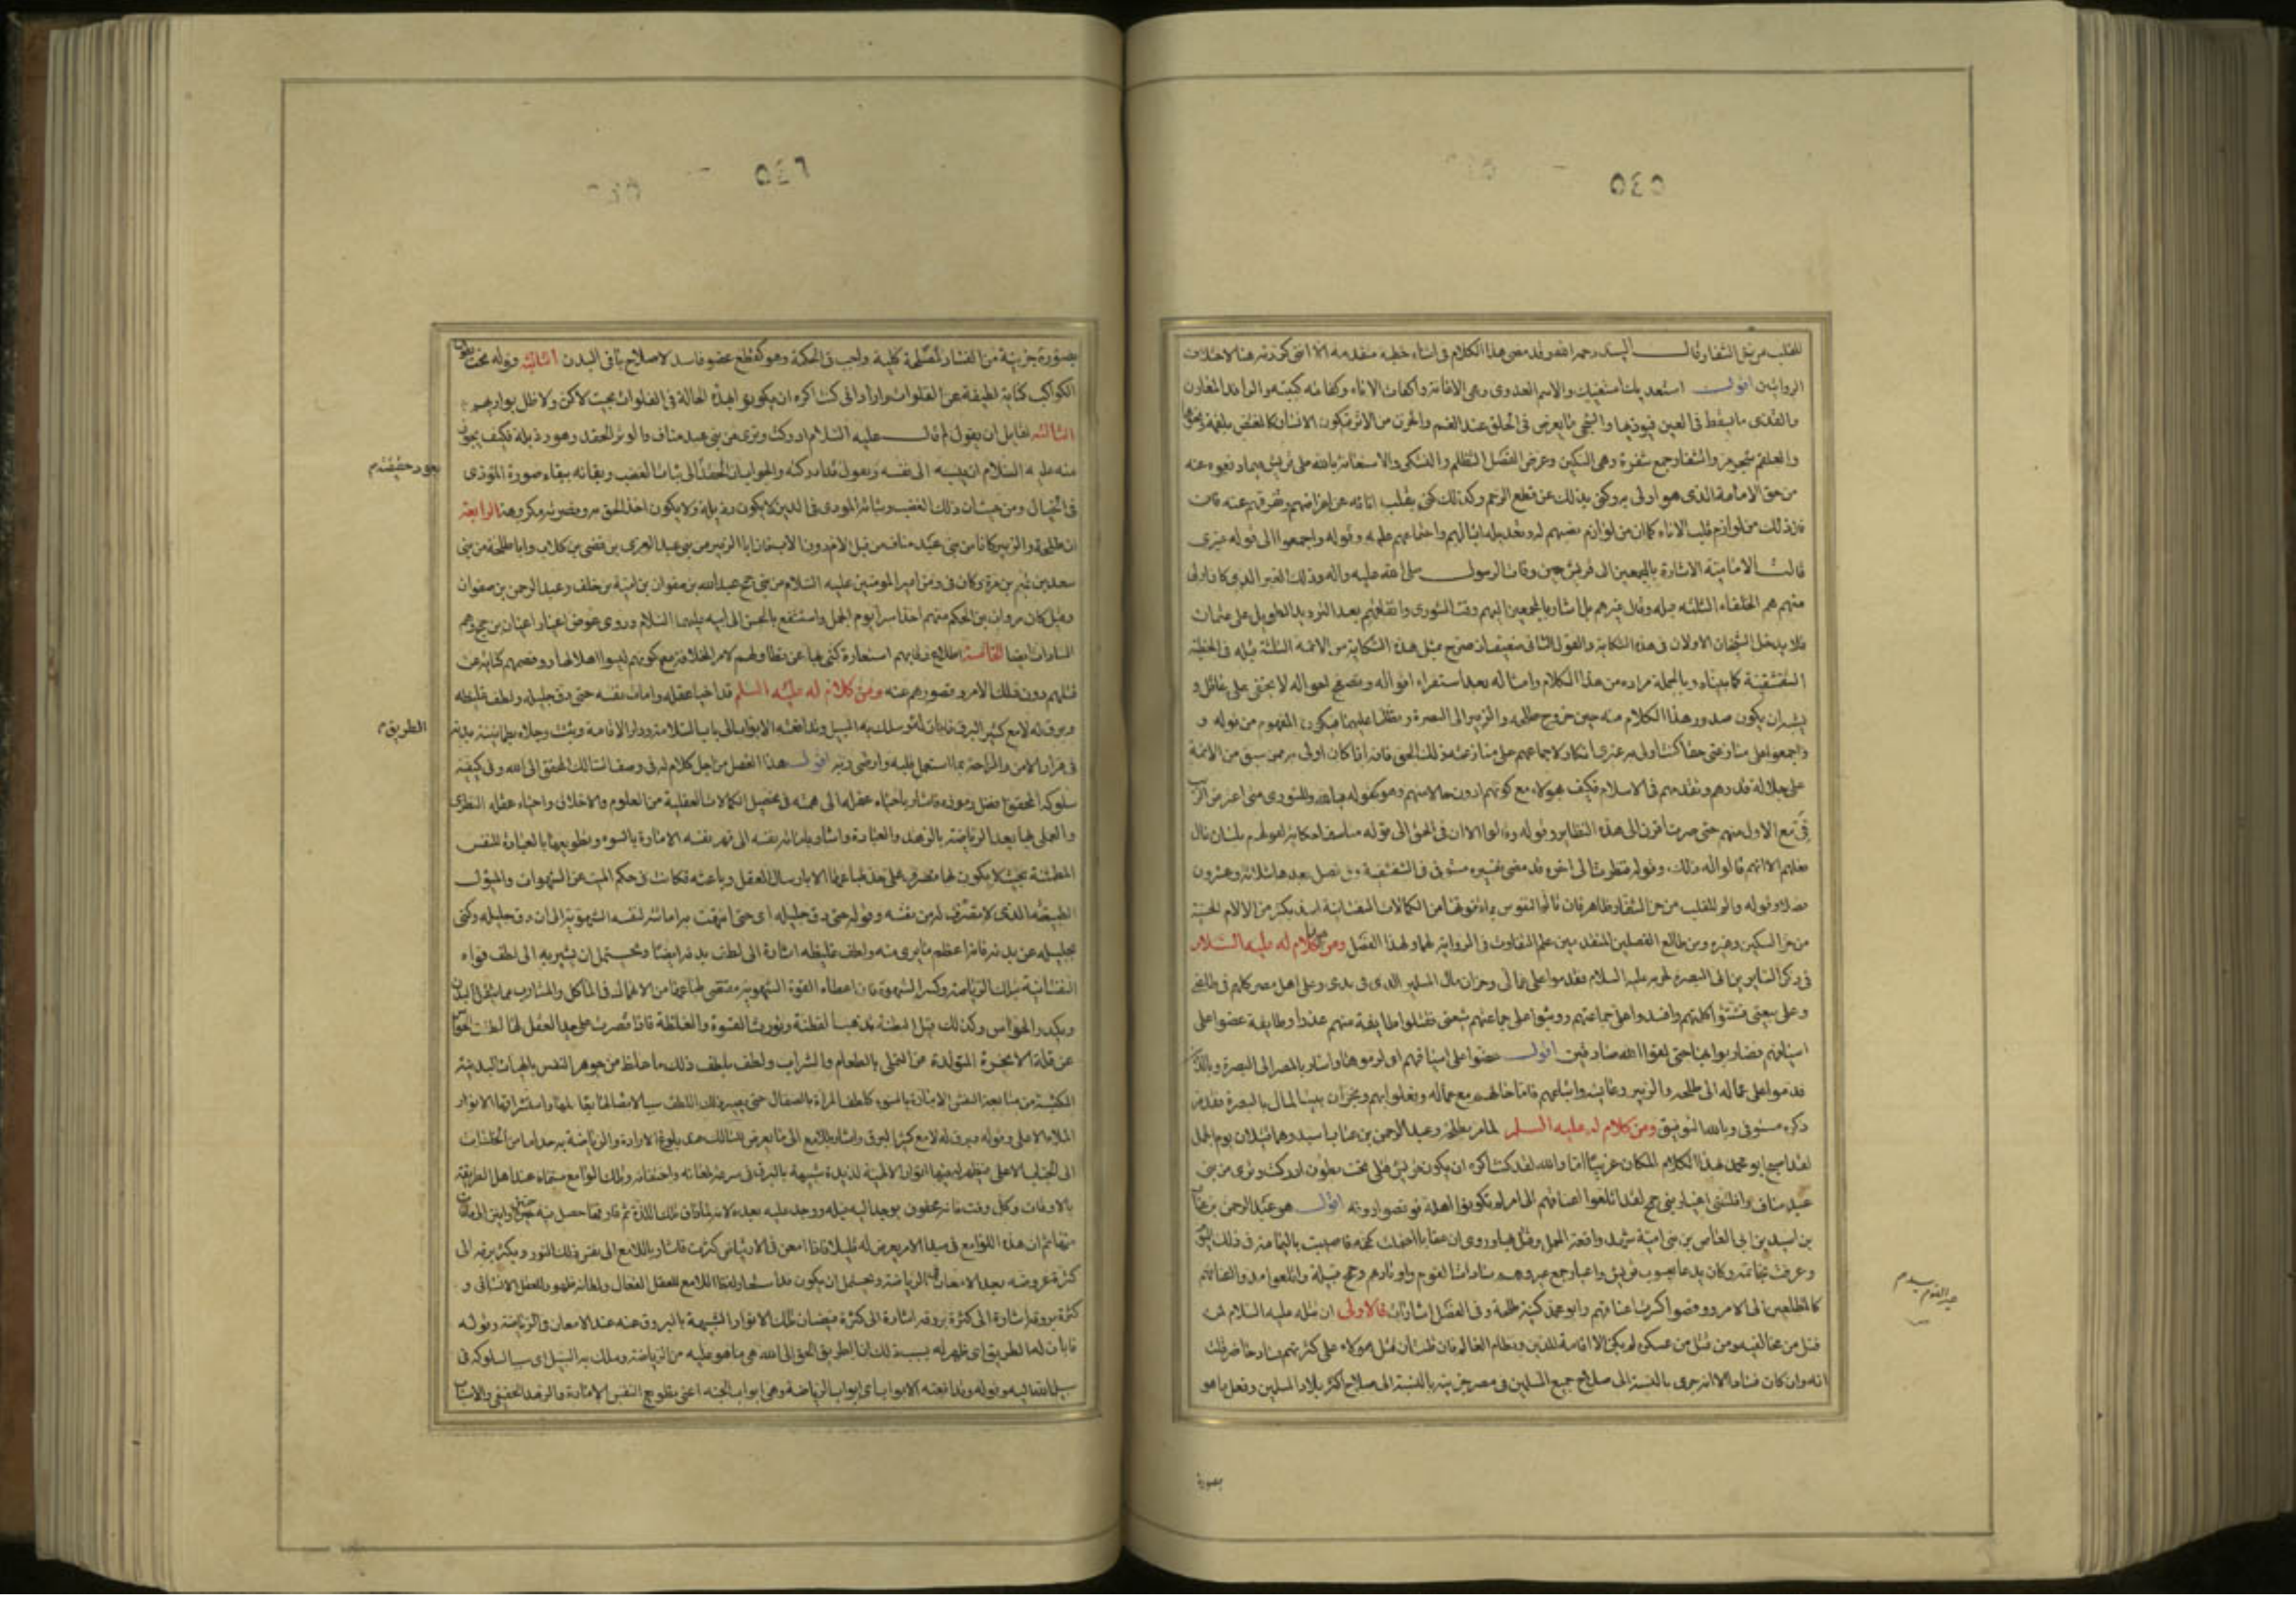 ٥٤٥
للقلب من حز الشفار قال السيد رحمه الله وقد مضى هذا الكلام في اثناء خطبة متقدمة الا انني كررته هنا لاختلاف
الروايتين اقول استعديك استغيثك والاسم العدوى وهى الاغاثة واكفات الاناء وكفاته كببته والرافد المعاون
والقذى ما يسقط في العين فيوذيها والشجى ما يعرض في الحلق عند الغم والحزن من الاثر فيكون الانسان كالمغتص بلقمة ونحوها
والعلقم شجر مر والشفار جمع شفرة وهى السكين وغرض الفصل التظلم والتشكى والاستعانة بالله على قريش فيما دفعوه عنه
من حق الامامة الذى هو اولى به وكنى بذلك عن قطع الرحم وكذلك كنى بقلب انائه عن اعراضهم وتفرقهم عنه فان
ذلك من لوازم قلب الاناء كما ان من لوازم نصبهم له وتعديله اقبالهم واجتماعهم عليه وقوله واجمعوا الى قوله غيرى
قالت الامامية الاشارة بالمجمعين الى قريش حين وفات الرسول صلى الله عليه واله وذلك الغير الذى كان اولى
منهم هم الخلفاء الثلثة قبله وقال غيرهم بل اشار بالمجمعين اليهم وقت الشورى واتفاقهم بعد التردد الطويل على عثمان
فلا يدخل الشيخان الاولان في هذه الشكاية والقول الثانى ضعيف اذ صرح بمثل هذه الشكاية من الائمة الثلثة قبله في الخطبة
الشقشقية كما بيناه وبالجملة مراده من هذا الكلام وامثاله بعد استقراء اقواله وتصفح احواله لا يخفى على عاقل و
يشبه ان يكون صدور هذا الكلام منه حين خروج طلحه والزبير الى البصرة تظلما عليهما فيكون المفهوم من قوله و
واجمعوا على منازعتى حقا كنت اولى به غيرى انكارا لاجماعهم على منازعته ذلك الحق فانه اذا كان اولى به ممن سبق من الائمة
على جلالة قدرهم وتقدمهم في الاسلام فكيف بهؤلاء مع كونهم ادون حالا منهم وهو كقوله فيا لله وللشورى متى اعترض الريب
فىّ مع الاول منهم حتى صرت اقرن الى هذه النظاير وقوله وقالوا الا ان في الحق الى قوله متاسفا حكاية لقولهم بلسان حال
فعلهم لا انهم قالوا له ذلك وقوله فنظرت الى اخره قد مضى تفسيره مستوفى في الشقشقية وفى فصل بعدها بثلاثة وعشرون
فصلا وقوله والم للقلب من حز الشفار ظاهر فان تالم النفوس بما يفوتها من الكمالات النفسانية اشد بكثير من الالام الحسية
من حز السكين وغيره ومن طالع الفصلين المتقدمين علم التفاوت في الرواية لهما ولهذا الفصل ومن كلام له عليه السلام
في ذكر السايرين الى البصرة لحربه عليه السلام فقدموا على عمالى وخزان مال المسلمين الذى في يدى وعلى اهل مصر كلهم في طاعتى
وعلى بيعتى فشتتوا كلمتهم وافسدوا على جماعتهم ووثبوا على شيعتى فقتلوا طايفة منهم غدرا وطايفة عضوا على
اسيافهم فضاربوا بها حتى لقوا الله صادقين اقول عضوا على اسيافهم اى لزموها واشار بالمصر الى البصرة وبالذين
قدموا على عماله الى طلحه والزبير وعايشه واتباعهم فاما حالهم مع عماله وفعلوا بهم وبخزان بيت المال بالبصرة فقد مر
ذكره مستوفى وبالله التوفيق ومن كلام له عليه السلم لما مر بطلحة وعبد الرحمن بن عتاب بن اسيد وهما قتيلان يوم الجمل
لقد اصبح ابو محمد بهذا المكان غريبا اما والله لقد كنت اكره ان يكون قريش قتلى تحت بطون الكواكب ادركت وترى من بنى
عبد مناف وافلتنى اعيار بنى جمح لقد اتلعوا اعناقهم الى امر لم يكونوا اهله فوقصوا دونه اقول هو عبد الرحمن بن عتاب
بن اسيد بن ابى العاص بن بنى امية شهد واقعة الجمل وقتل فيها وروى ان عقابا احتملت كفه فاصيبت باليمامة في ذلك اليوم
وعرفت بخاتمه وكان يدعا يعسوب قريش واعيار جمع عير وهم سادات القوم واوتادهم وجمح قبيلة واتلعوا مدوا اعناقهم
كالمتطلعين الى الامر ووقصوا كسرت اعناقهم وابو محمد كنية طلحة وفى الفصل اشارات فالاولى ان قتله عليه السلام لمن
قتل من مخالفيه ومن قتل من عسكره لم يكن الا اقامة للدين ونظام العالم فان ظننت ان قتل هؤلاء على كثرتهم فساد حاضر قلت
انه وان كان فسادا الا انه جزى بالنسبة الى صلاح جميع المسلمين في مصر جزئية بالنسبة الى صلاح اكثر بلاد المسلمين وفعل ما هو
بصورة
٥٤٦
بصورة جزئية من الفساد لمصلحة كلية واجب في الحكمة وهو كقطع عضو فاسد لاصلاح باقى البدن الثانية وقوله تحت بطون
الكواكب كناية لطيفة عن الفلوات واراد انى كنت اكره ان يكونوا بهذه الحالة في الفلوات بحيث لا كن ولا ظل يواريهم
الثالثة لقايل ان يقول لم قال عليه السلام ادركت وترى من بنى عبد مناف والوتر الحقد وهو رذيلة فكيف يجوز
منه عليه السلام ان ينسبه الى نفسه ويقول قد ادركته والجواب ان الحقد الى ثبات الغضب وبقائه ببقاء صورة الموذى
في الخيال ومن حيث ان ذلك الغضب وبثاثه الموذى في الدين لا يكون رذيلة ولا يكون اخذ الحق به ونصرته مكروهة الرابعة
ان طلحة والزبير كانا من بنى عبد مناف من قبل الام دون الاب فان ابا الزبير من بنى عبد العزى بن قصى بن كلاب وابا طلحة من بنى
سعد بن تيم بن مرة وكان في زمن امير المومنين عليه السلام من بنى جمح عبدالله بن صفوان بن امية بن خلف وعبد الرحمن بن صفوان
وقيل كان مروان بن الحكم منهم اخذ اسيرا يوم الجمل واستشفع بالحسن الى ابيه عليهما السلام وروى عوض اعيار اعيان بن جمح وهم
السادات ايضا الخامسة اطلاع رقابهم استعارة كنى بها عن تطاولهم لامر الخلافة مع كونهم ليسوا اهلا لها ووقصهم كناية عن
قتلهم دون ذلك الامر وقصورهم عنه ومن كلام له عليه السلم قد احيا عقله وامات نفسه حتى دق جليله ولطف غليظه
وبرق له لامع كثير البرق فابان له وسلك به السبيل وتدافعته الابواب الى باب السلامة ودار الاقامة وثبتت رجلاه بطمانينة بدنه
في قرار الامن والراحة بما استعمل قلبه وارضى ربه اقول هذا الفصل من اجل كلام له في وصف السالك المحقق الى الله وفى كيفية
سلوكه المحقق وافضل رموزه فاشار باحياء عقله الى همته في تحصيل الكمالات العقلية من العلوم والاخلاق واحياء عقله النظرى
والعملى بها بعد الرياضة بالزهد والعبادة واشار باماتة نفسه الى قهر نفسه الامارة بالسوء وتطويعها بالعبادة للنفس
المطمئنة بحيث لا يكون لها تصرف على حد طباعها الا بارسال العقل وباعثه فكانت في حكم الميت عن الشهوات والميول
الطبيعية الذى لا تصرف له من نفسه وقوله حتى دق جليله اى حتى انتهت به اماتته لنفسه الشهوية الى ان دق جليله وكنى
بجليله عن بدنه فانه اعظم ما يرى منه ولطف غليظه اشارة الى لطف بدنه ايضا ويحتمل ان يشير به الى لطف قواه
النفسانية بتلك الرياضة وكسر الشهوة فان اعطاء القوة الشهوية مقتضى طباعها من الانهماك في المآكل والمشارب مما يثقل البدن
ويكدر الحواس وكذلك قيل البطنة تذهب الفطنة وتورث القسوة والغلظة فاذا قصرت على حد العقل لها لطفت الحواس
عن قلة الابخرة المتولدة عن التملى بالطعام والشراب ولطف بلطف ذلك ما غلظ من جوهر النفس بالهيآت البدنية
المكتسبة من متابعة النفس الامارة بالسوء كلطف المراة بالصقال حتى يصير ذلك اللطف سببا لاتصالها بعالمها واستشراقها لانوار
الملاء الاعلى وقوله وبرق له لامع كثير البرق واشار باللامع الى ما يعرض للسالك عند بلوغ الارادة والرياضة به حدا ما من الخلسات
الى الجناب الاعلى فيظهر له عليها انوار الالهية لذيذة شبيهة بالبرق في سرعة لمعانه واختفائه وتلك اللوامع مسماة عند اهل الطريقة
بالاوقات وكل وقت فانه محفوف بوجد اليه قبله ووجد عليه بعده
ثم ان هذه اللوامع في مبدا الامر يعرض له قليلا فاذا امعن في الارتياض كثرت فاشار باللامع الى نفس ذلك النور وبكثرة برقه الى
كثرة عروضه بعد الامعان في الرياضة ويحتمل ان يكون قد استعار لفظ اللامع للعقل الفعال ولمعانه ظهوره للعقل الانسانى و
كثرة بروقه اشارة الى كثرة فيضان تلك الانوار الشبيهة بالبروق عنه عند الامعان في الرياضة وقوله
فابان له الطريق اى ظهر له بسبب ذلك ان الطريق الحق الى الله هى ما هو عليه من الرياضة وسلك به السبيل اى سبب السلوكه في
سبيل الله اليه وقوله وتدافعته الابواب اى ابواب الرياضة وهى ابواب الجنة اعنى تطويع النفس الامارة والزهد الحقيقى والاسباب
الطريق